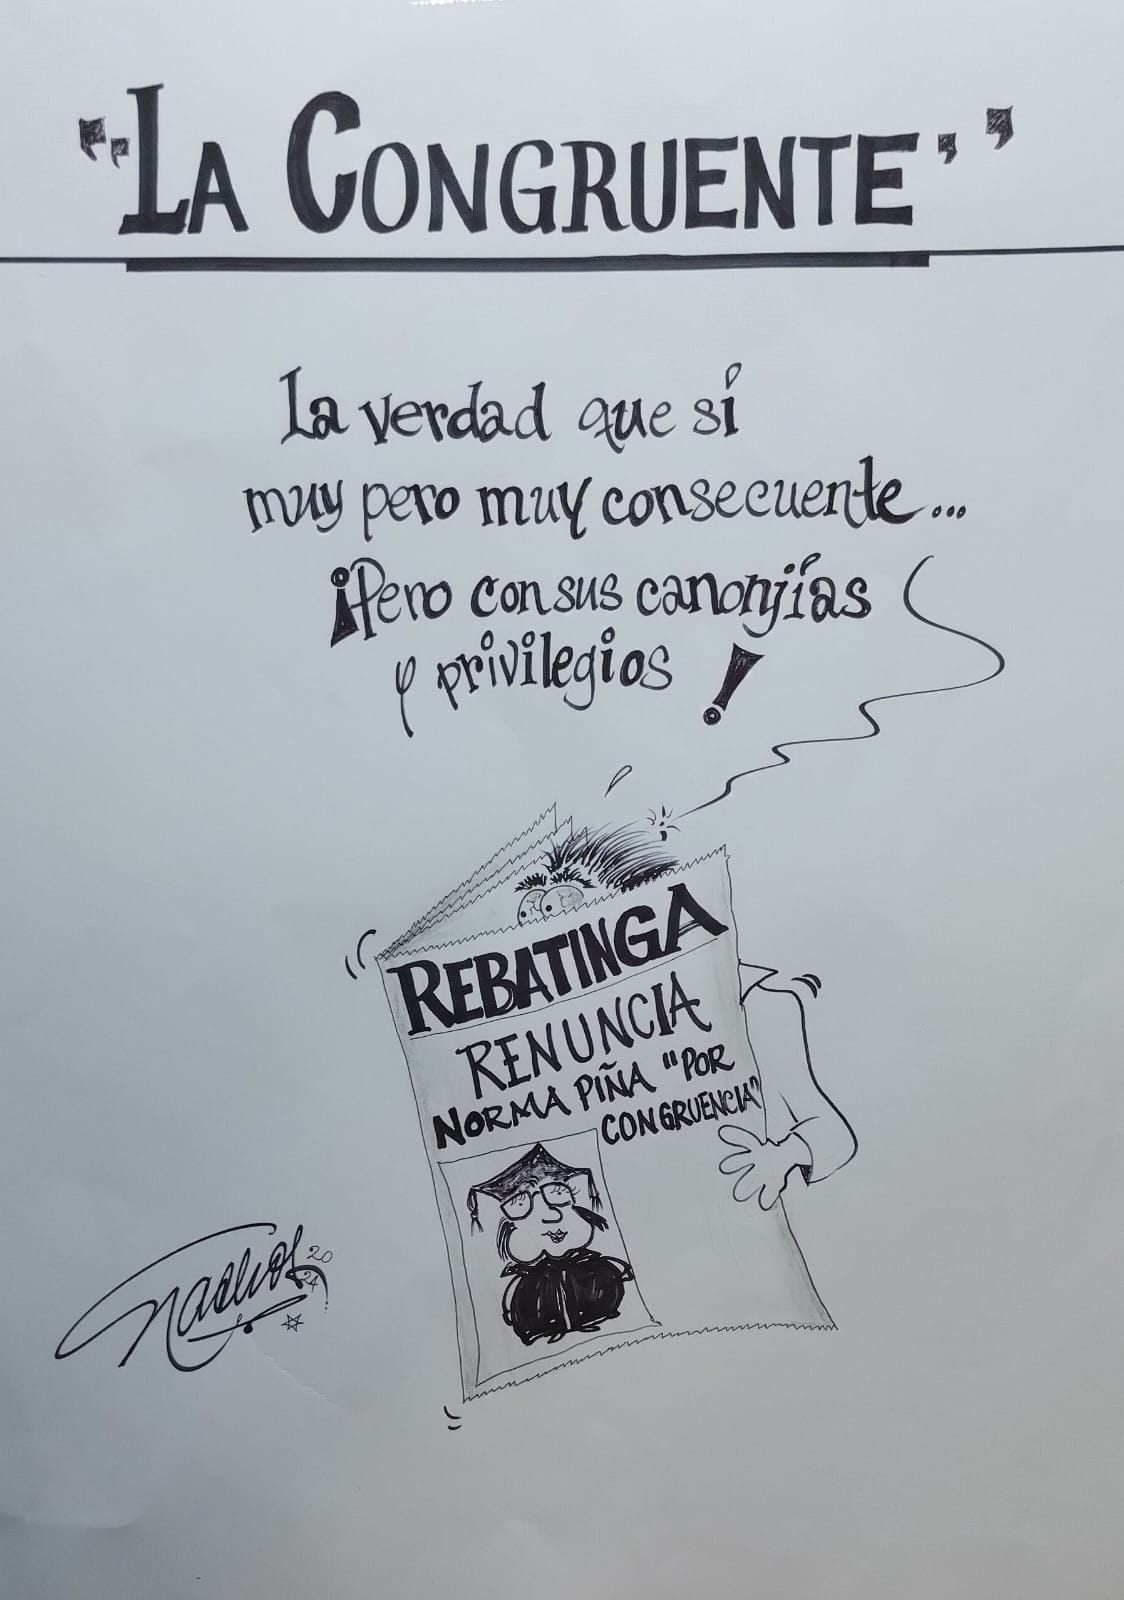 "La Congruente"
La verdad que sí
muy pero muy consecuente...
¡Pero con sus canonjías
y privilegios!
REBATINGA
RENUNCIA
NORMA PIÑA "POR
CONGRUENCIA"
20
24